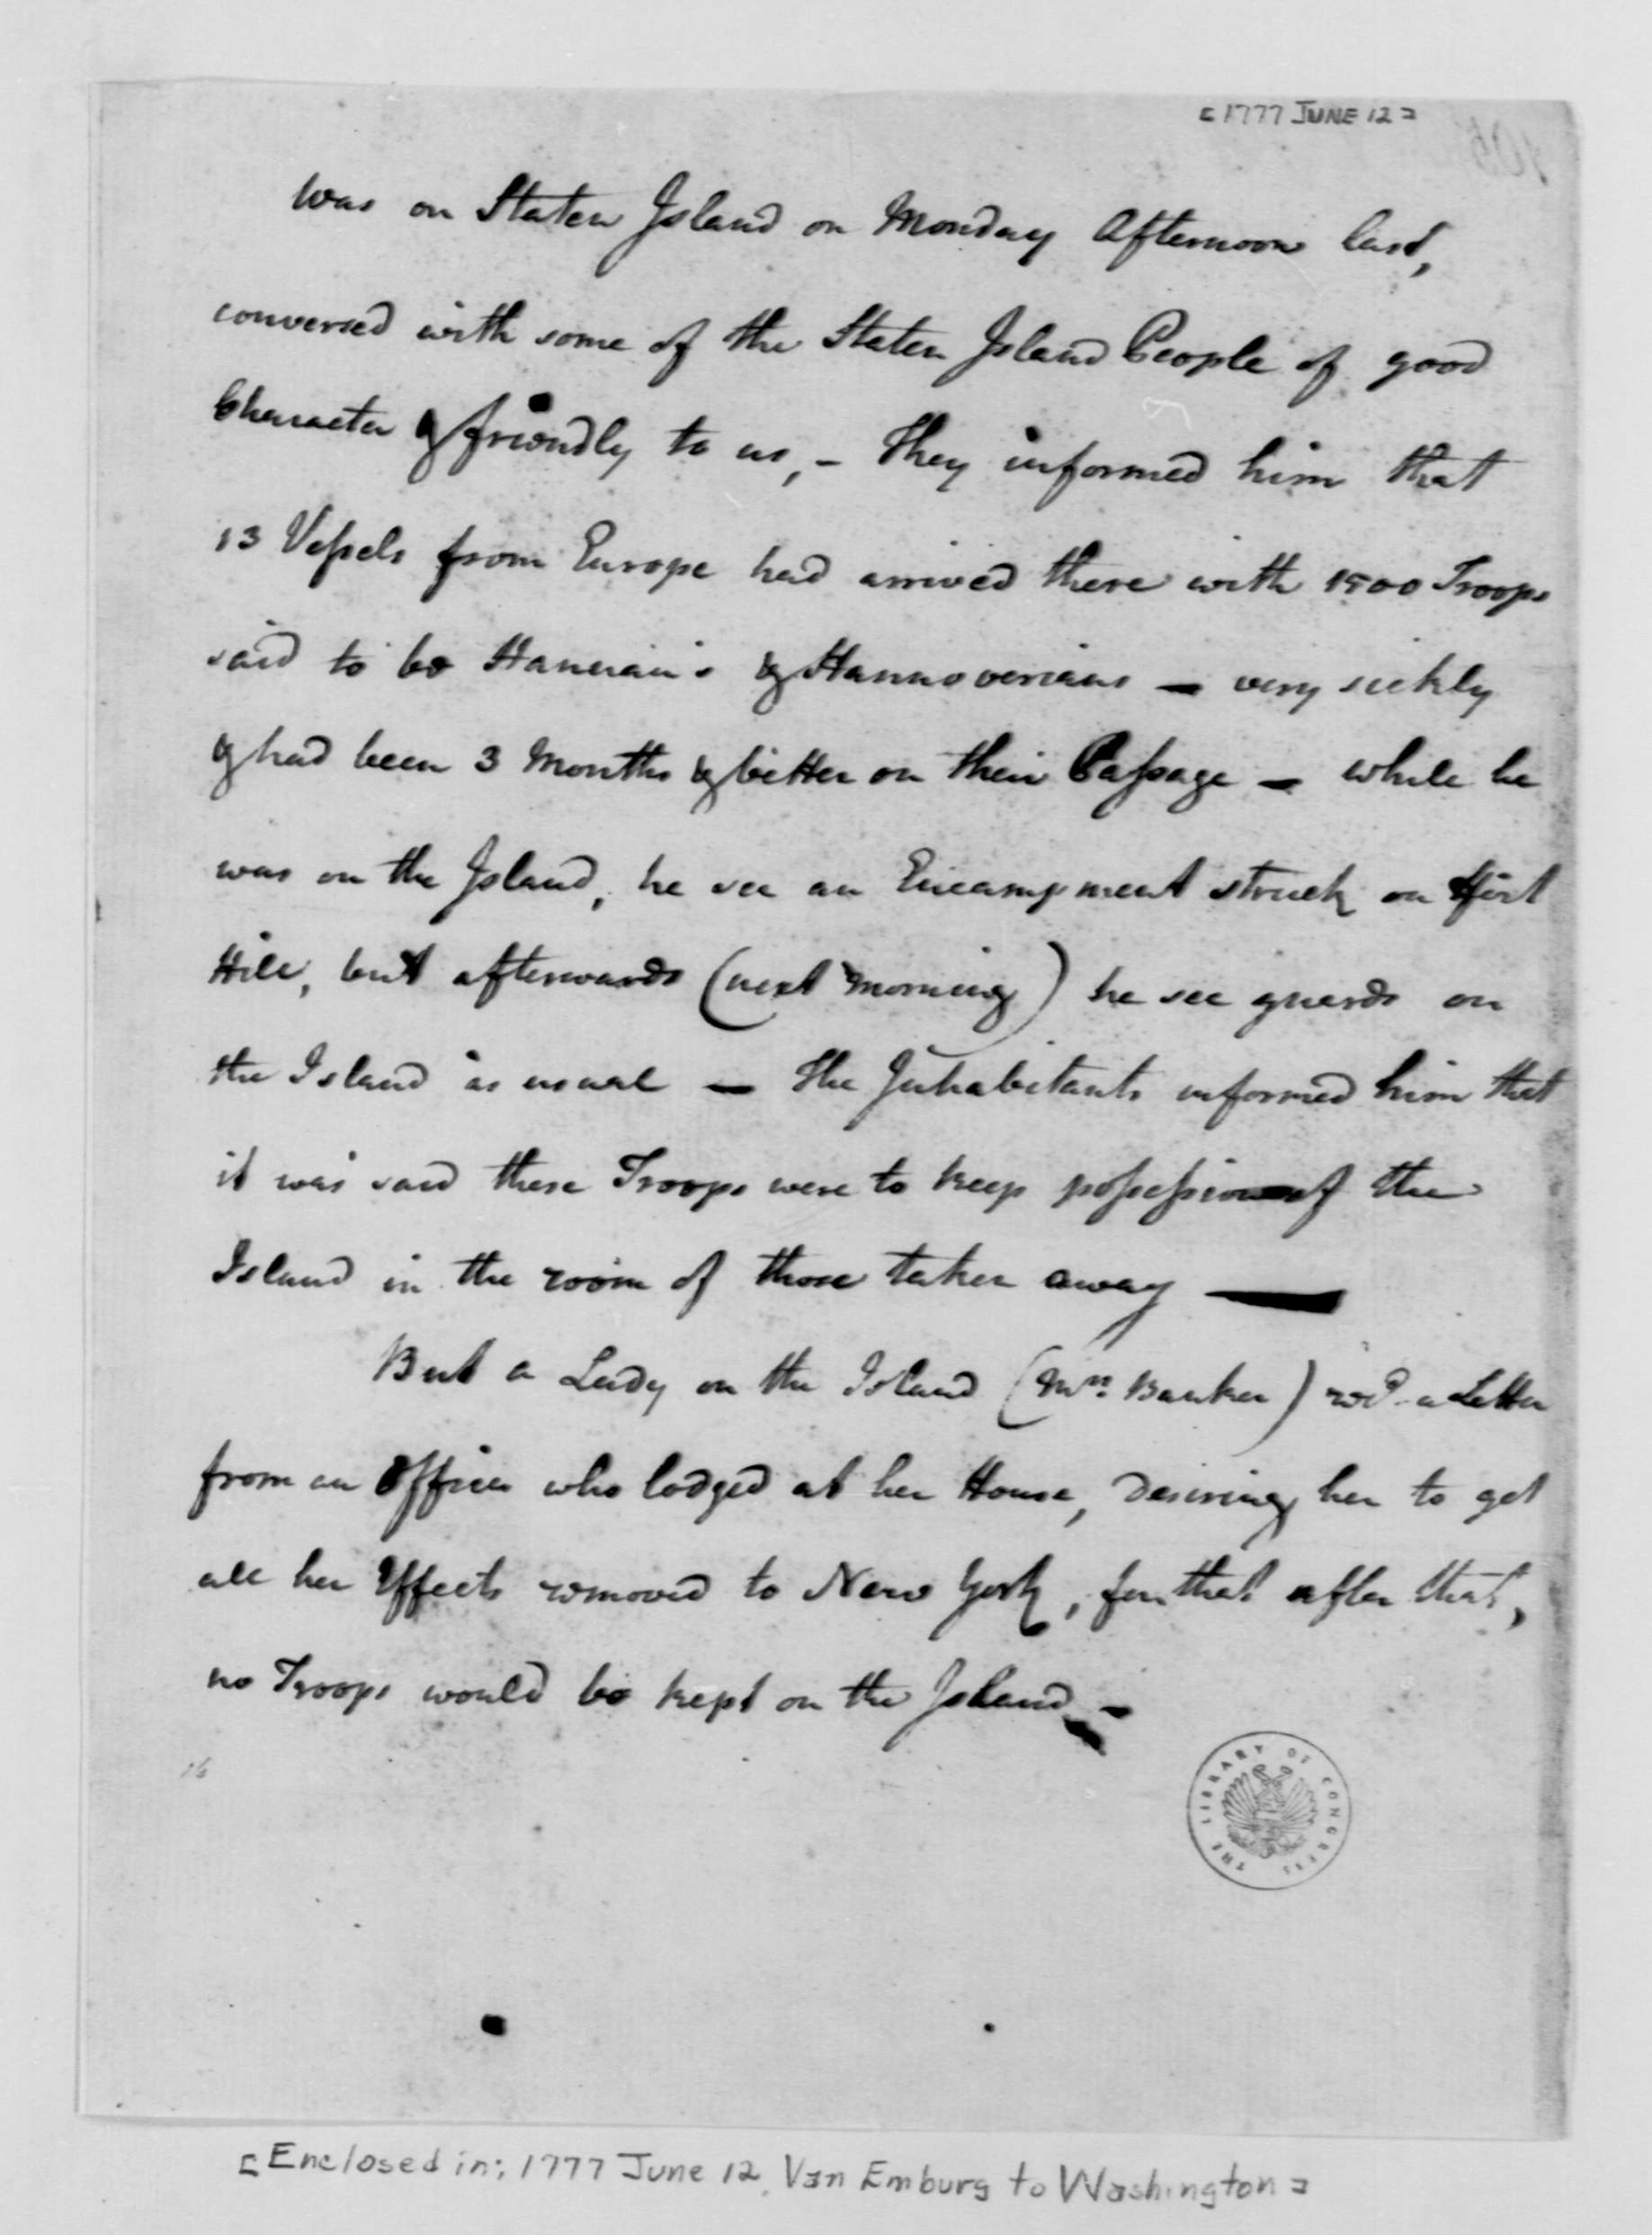 [1777 JUNE 12]
was on Staten Island on Monday Afternoon last,
conversed with some of the Staten Island People of good
Character & friendly to us, - They informed him that
13 Vessels from Europe had arrived there with 1500 Troops
said to be & Hannoverians — very sickly
& had been 3 Months & better on their Passage — while he
was on the Island, he see an Encampment struck on
Hill, but afterwards (next Morning) he see guards on
the Island as usual — The Inhabitants informed him that
it was said these Troops were to keep possession of the
Island in the room of those taken away —
But a Lady on the Island (Mrs. Banker) recd. a Letter
from an Officer who lodged at her House, desiring her to get
all her Effects removed to New York, for that after that,
no Troops would be kept on the Island —
16
THE LIBRARY OF CONGRESS
[Enclosed in: 1777 June 12, Van Emburg to Washington]